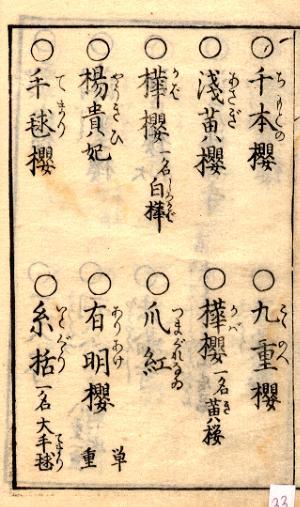 千本櫻
ちもとの
九重櫻
こゝのへ
淺黃櫻
あさぎ
樺櫻 一名黃桜
かば き
樺櫻 一名白樺
かば しろかば
爪紅
つまぐれなゐ
楊貴妃
やうきひ
有明櫻 単重
ありあけ
手毬櫻
てまり
糸括 一名大手毬
いとぐゝり てまり
33